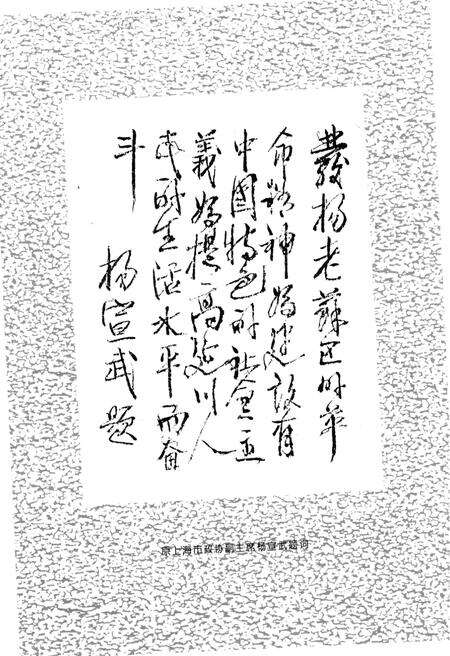 發扬老蘇区的革
命精神為建設有
中國特色的社会主
義為提高延川人
民的生活水平而奋
斗
杨宣武题
原上海市政协副主席杨宣武题词